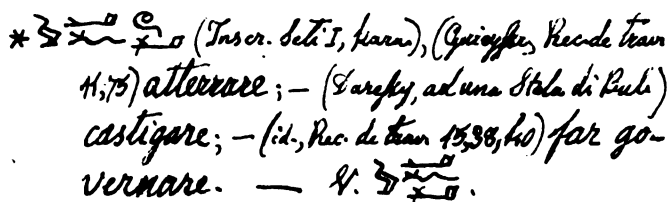 * (Inscr. Seti I, Karn.), (Guieysse, Rec. de trav.
11, 75) atterrare; — (Daressy, ad una Stela di
castigare; — (id., Rec. de trav. 15, 38, 40) far go-
vernare. — V.